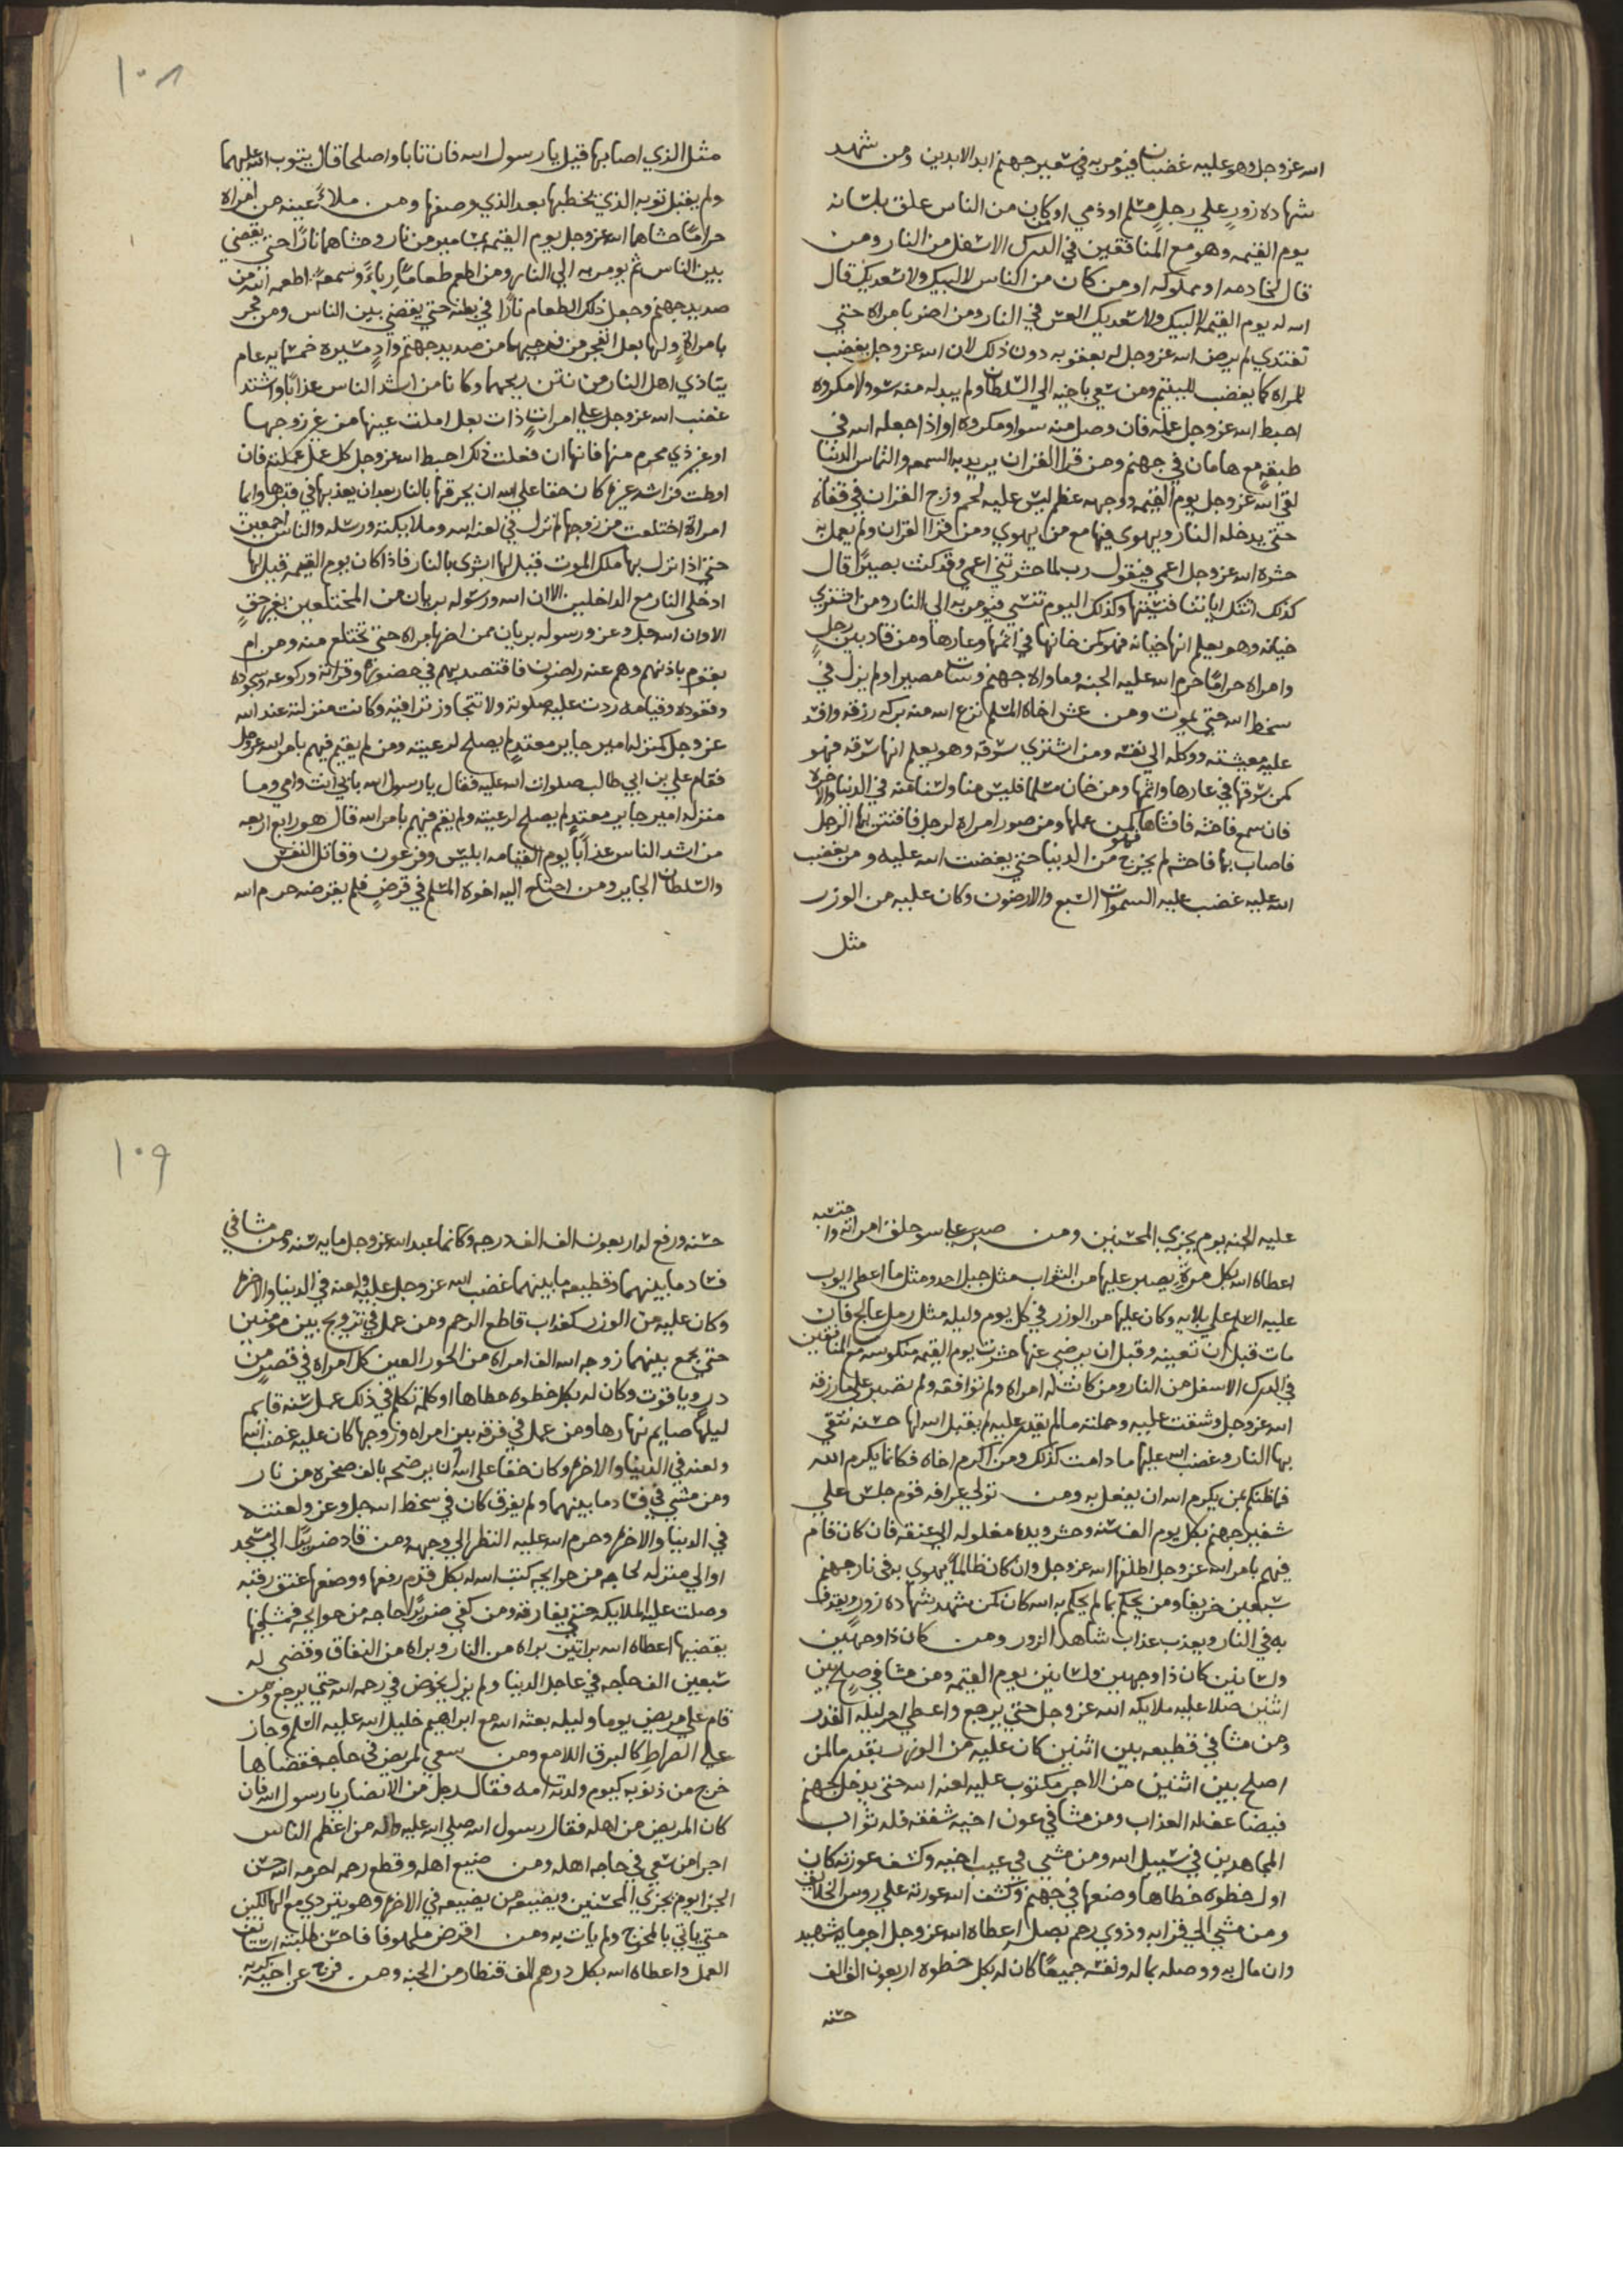 الله عز وجل وهو عليه غضبان فيومر به في سعير جهنم ابد الابدين ومن شهد
شهاده زور علي رجل مسلم او ذمي او كان من الناس علق بلسانه
يوم القيمه وهو مع المنافقين في الدرك الاسفل من النار ومن
قال لخادمه او مملوكه او من كان من الناس لا لبيك ولا سعديك قال
الله له يوم القيمه لا لبيك ولا سعديك اتعس في النار ومن اضر بامراه حتي
تفتدي لم يرض الله عز وجل له بعقوبه دون ذلك لان الله عز وجل يغضب
للمراه كما يغضب لليتيم ومن سعي باخيه الي السلطان ولم يبد له منه سو ولا مكروه
احبط الله عز وجل عمله فان وصل منه سوا ومكروه او اذا جعله الله في
طبقه مع هامان في جهنم ومن قرا القران يريد به السمعه والتماس الدنيا
لقي الله عز وجل يوم القيمه ووجهه عظم ليس عليه لحم وزج القران في قفاه
حتي يدخله النار ويهوي فيها مع من يهوي ومن قرا القران ولم يعمل به
حشره الله عز وجل اعمي فيقول رب لما حشرتني اعمي وقد كنت بصيرا قال
كذلك اتتك اياتنا فنسيتها وكذلك اليوم تنسي فيومر به الي النار ومن اشتري
خيانه وهو يعلم انها خيانه فهو كمن خانها في اثمها وعارها ومن قاد بين رجل
وامراه حراما حرم الله عليه الجنه وماواه جهنم وسات مصيرا ولم يزل في
سخط الله حتي يموت ومن غش اخاه المسلم نزع الله منه بركه رزقه وافسد
عليه معيشته ووكله الي نفسه ومن اشتري سرقه وهو يعلم انها سرقه فهو
كمن سرقها في عارها واثمها ومن خان مسلما فليس منا ولسنا منه في الدنيا والاخره
فان سمع فاحشه فافشاها فهو كمن عملها ومن صور امراه لرجل فافتتن بها الرجل
فاصاب بها فاحشه لم يخرج من الدنيا حتي يغضب الله عليه ومن يغضب
الله عليه غضب عليه السموات السبع والارضون وكان عليه من الوزر
مثل
١٠٨
مثل الذي اصابها قيل يا رسول الله فان تابا واصلحا قال يتوب الله عليهما
ولم يقبل توبه الذي يخطبها بعد الذي وصفها ومن ملا عينه من امراه
حراما حشاها الله عز وجل يوم القيمه بمسامير من نار وحشاهما نارا حتي يقضي
بين الناس ثم يومر به الي النار ومن اطعم طعاما رياء وسمعه اطعمه الله من
صديد جهنم وجعل ذلك الطعام نارا في بطنه حتي يقضي بين الناس ومن فجر
بامراة ولها بعل انفجر من فرجيهما من صديد جهنم واد مسيره خمسمايه عام
يتاذي اهل النار من نتن ريحهما وكانا من اشد الناس عذابا واشتد
غضب الله عز وجل علي امراة ذات بعل املت عينها من غير زوجها
او غير ذي محرم منها فانها ان فعلت ذلك احبط الله عز وجل كل عمل عملته فان
اوطت فراشه غيره كان حقا علي الله ان يحرقها بالنار بعد ان يعذبها في قبرها وايما
امراة اختلعت من زوجها لم تزل في لعنه الله وملايكته ورسله والناس اجمعين
حتي اذا نزل بها ملك الموت قيل لها ابشري بالنار فاذا كان يوم القيمه قيل لها
ادخلي النار مع الداخلين الا ان الله ورسوله بريان من المختلعين بغير حق
الا وان الله جل وعز ورسوله بريان ممن اضر بامراه حتي تختلع منه ومن ام
بقوم باذنهم وهم عنه راضون فاقتصد بهم في حضوره وقراته وركوعه وسجوده
وقعوده وقيامه ردت عليه صلوته ولا تتجاوز تراقيه وكانت منزلته عند الله
عز وجل كمنزله امير جاير معتد لم يصلح لرعيته ومن لم يقم فيهم بامر الله عز وجل
فقام علي بن ابي طالب صلوات الله عليه فقال يا رسول الله بابي انت وامي وما
منزله امير جاير معتد لم يصلح لرعيته ولم يقم فيهم بامر الله قال هو رابع اربعه
من اشد الناس عذابا يوم القيامه ابليس وفرعون وقاتل النفس
والسلطان الجاير ومن احتاج اليه اخوه المسلم في قرض فلم يقرضه حرم الله
عليه الجنه يوم يجزي المحسنين ومن صبر علي سو خلق امراته واحتسبه
اعطاه الله بكل مره يصبر عليها من الثواب مثل جبل احد ومثل ما اعطي ايوب
عليه السلم علي بلايه وكان عليها من الوزر في كل يوم وليله مثل رمل عالج فان
مات قبل ان تعينه وقبل ان يرضي عنها حشرت يوم القيمه منكوسه مع المنافقين
في الدرك الاسفل من النار ومن كانت له امراه ولم توافقه ولم تصبر علي ما رزقه
الله عز وجل وشقت عليه وحملته مالم يقدر عليه لم يقبل الله لها حسنه تتقي
بها النار وغضب الله عليها ما دامت كذلك ومن اكرم اخاه فكانما يكرم الله
فما ظنكم بمن يكرم الله ان يفعل به ومن تولي عرافه قوم حبس علي
شفير جهنم بكل يوم الف سنه وحشر ويده مغلوله الي عنقه فان كان قام
فيهم بامر الله عز وجل اطلقها الله عز وجل وان كان ظالما يهوي به في نار جهنم
سبعين خريفا ومن يحكم بما لم يحكم به الله كان كمن شهد شهاده زور ويقذف
به في النار ويعذب عذاب شاهد الزور ومن كان ذا وجهين
ولسانين كان ذا وجهين ولسانين يوم القيمه ومن مشا في صلح بين
اثنين صلا عليه ملايكه الله عز وجل حتي يرجع واعطي اجر ليله القدر
ومن مشا في قطيعه بين اثنين كان عليه من الوزر بقدر ما لمن
اصلح بين اثنين من الاجر مكتوب عليه لعنه الله حتي يدخل جهنم
فيضاعف له العذاب ومن مشا في عون اخيه شفقه فله ثواب
المجاهدين في سبيل الله ومن مشي في عيب اخيه وكشف عورته كان
اول خطوه خطاها وضعها في جهنم وكشف الله عورته علي روس الخلايق
ومن مشي الي قرابه وذوي رحم يصل اعطاه الله عز وجل اجر مايه شهيد
وان مال به ووصله بماله ونفسه جميعا كان له بكل خطوه اربعون الف الف
حسنه
١٠٩
حسنه ورفع له اربعون الف الف درجه وكانما عبد الله عز وجل مايه سنه ومن مشا في
فساد ما بينهما وقطيعه ما بينهما غضب الله عز وجل عليه ولعنه في الدنيا والاخره
وكان عليه من الوزر كعذاب قاطع الرحم ومن عمل في تزويج بين مومنين
حتي يجمع بينهما زوجه الله الف امراه من الحور العين كل امراه في قصر من
در وياقوت وكان له بكل خطوه خطاها او كلمه تكلم في ذلك عمل سنه قايم
ليلها صايم نهارها ومن عمل في فرقه بين امراه وزوجها كان عليه غضب الله
ولعنه في الدنيا والاخره وكان حقا علي الله ان يرضحه بالف صخره من نار
ومن مشي في فساد ما بينهما ولم يفرق كان في سخط الله جل وعز ولعنته
في الدنيا والاخره وحرم الله عليه النظر الي وجهه ومن قاد ضريرا الي مسجد
او الي منزله لحاجه من حوايجه كتب الله له بكل قدم رفعها ووضعها عتق رقبه
وصلت عليه الملايكه حتي يفارقه ومن كفي ضريرا حاجه من حوايجه فمشي فيها
يقضيها اعطاه الله براتين براه من النار وبراه من النفاق وقضي له
سبعين الف حاجه في عاجل الدنيا ولم يزل يخوض في رحمه الله حتي يرجع ومن
قام علي مريض يوما وليله بعثه الله مع ابراهيم خليل الله عليه السلم وجاز
علي الصراط كالبرق اللامع ومن سعي لمريض في حاجه فقضاها
خرج من ذنوبه كيوم ولدته امه فقال رجل من الانصار يا رسول الله فان
كان المريض من اهله فقال رسول الله صلي الله عليه واله من اعظم الناس
اجرا من سعي في حاجه اهله ومن ضيع اهله وقطع رحمه احرمه الله حسن
الجزا يوم يجزي المحسنين ويضيعه من يضيعه في الاخره وهو يتردي مع الهالكين
حتي ياتي بالمخرج ولم يات به ومن اقرض ملهوفا فاحسن طلبته استانف
العمل واعطاه الله بكل درهم الف قنطار من الجنه ومن فرج عن اخيه كربه